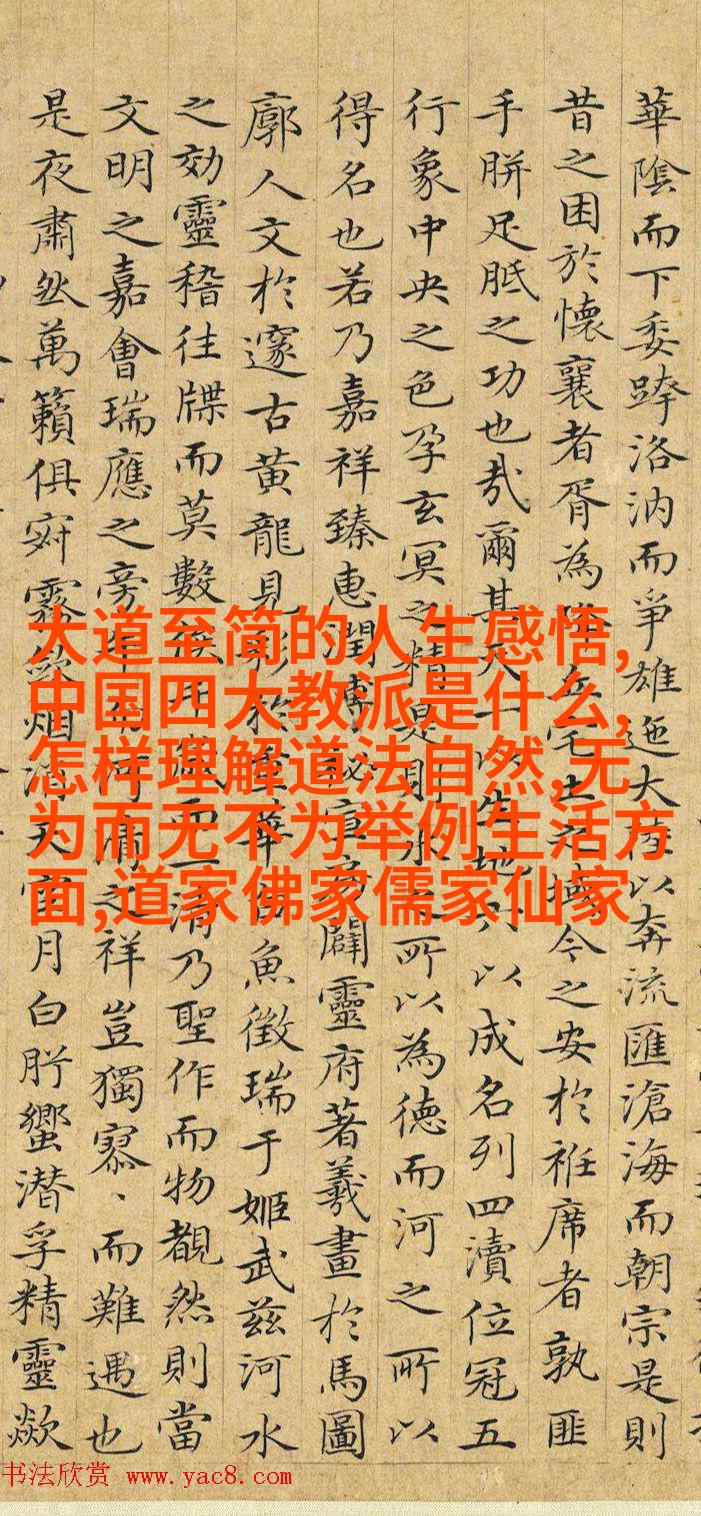 華陰而下委跨洛汭而爭雄迤大陸以奔流匯滄海而朝宗是則
昔之困於懷襄者胥為之域今之安於袵席者孰匪
手胼足胝之功也哉爾其天一以生地六以成名列四瀆位冠五
行象中央之色孕玄冥之精是則水之所以為德而河之所以
得名也若乃嘉祥臻惠潤溥秘闢靈府著羲畫於馬圖
廓人文於邃古黃龍見形於華白魚徵瑞于姬武茲河水
之効靈稽往牒而莫數候千歲而一清乃聖作而物覩然則當
文明之嘉會瑞應之旁午河之祥豈獨寡丶而難遇也
是夜肅然萬籟俱寂霧斂烟消天空月白肸蠁潛孚精靈歘
大道至简的人生感悟,
中国四大教派是什么,
怎样理解道法自然,无
为而无不为举例生活方
面,道家佛家儒家仙家
书法欣赏 www.yac8.com